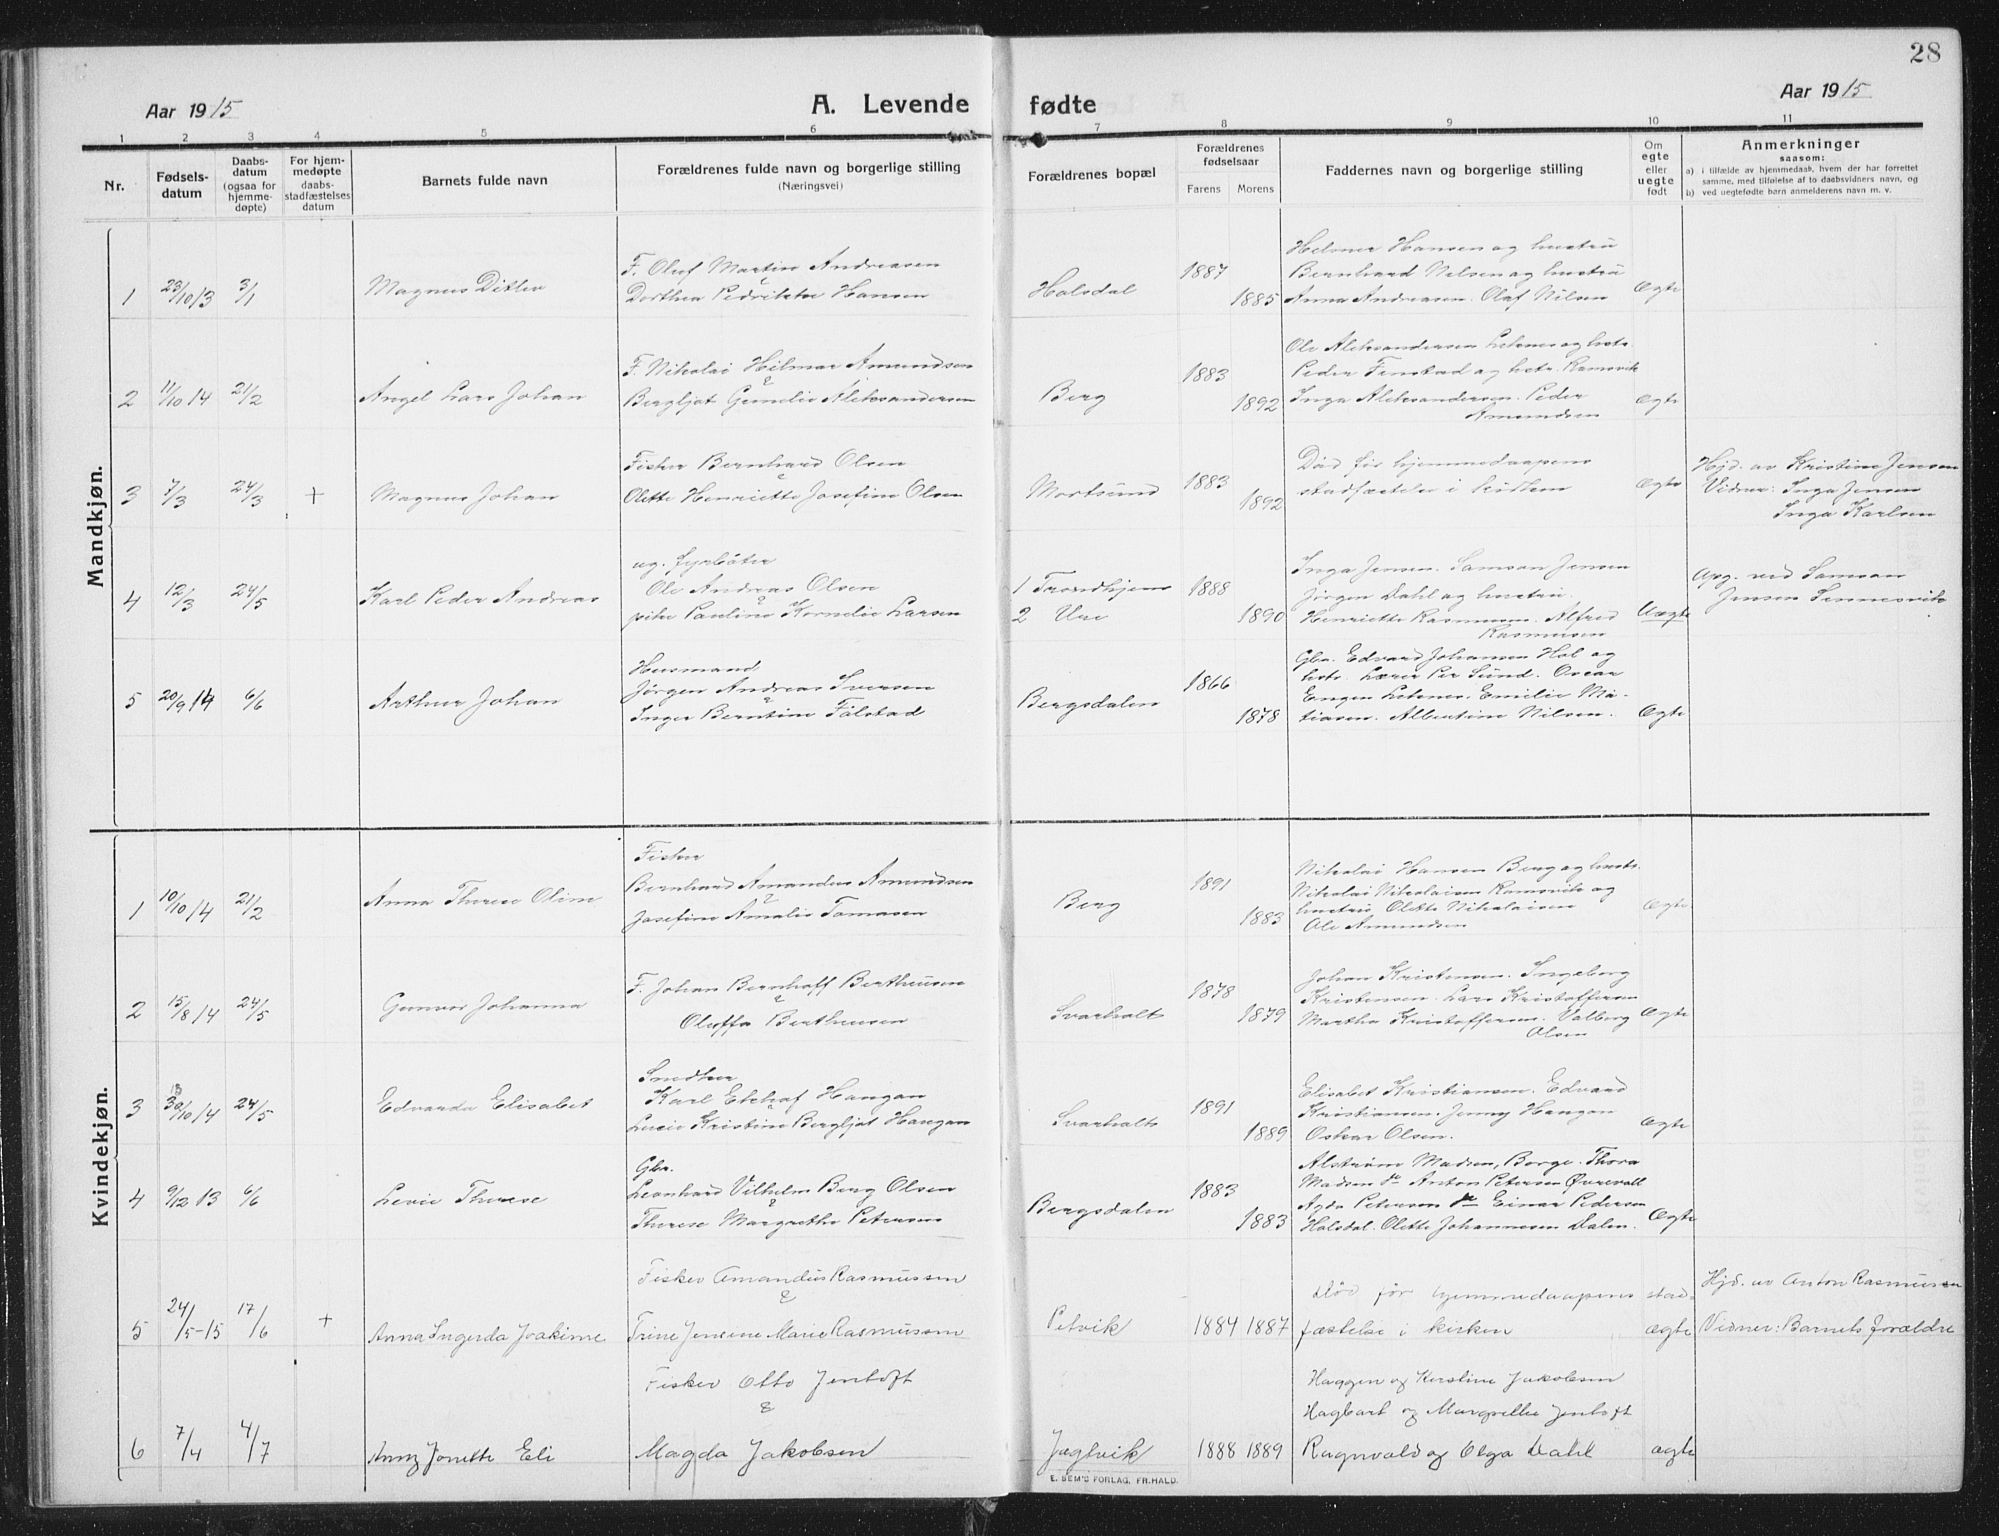 28
Aar 1915
A. Levende fødte
Aar 1915
1 2 3 4 5 6 7 8 9 10 11
Nr.
Fødsels-
datum
Daabs-
datum
(ogsaa for
hjemme-
døpte)
For hjem-
medøpte
daabs-
stadfæstelses
datum
Barnets fulde navn
Forældrenes fulde navn og borgerlige stilling
(Næringsvei)
Forældrenes bopæl
Forældrenes
fødselsaar
Farens Morens
Faddernes navn og borgerlige stilling
Om
egte
eller
uegte
født
Anmerkninger
saasom:
a) i tilfælde av hjemmedaab, hvem der har forrettet
samme, med tilføielse af to daabsvidners navn, og
b) ved uegtefødte børn anmelderens navn m. v.
Mandkjøn.
1 23/10 13 3/1
Magnus Ditlev
F. Oluf Martin Andreasen
Dorthea Pedrikke Hansen
Holsdal
1887
1885
Helmer Hansen og hustru
Bernhard Nilsen og hustru
Anna Andreasen. Olaf Nilsen
Ægte
2 11/10 14 21/2
Angel Lars Johan
F. Nikolai Hilmar Amundsen
&
Bergljot Gunelie Aleksandersen
Berg
1883
1892
Ole Aleksandersen og hustr.
Peder Finstad og hstr. Ramsvik
Inga Aleksandersen. Peder
Amundsen
Ægte
3 7/3 24/3 +
Magnus Johan
Fisker Bernhard Olsen
&
Olette Henriette Josefine Olsen
Mortsund
1883
1892
Død før hjemmedaapens
stadfæstelse i kirken
Ægte
Hjd. av Kristine Jensen
Vidner: Inga Jensen
Inga Karlsen
4 12/3 24/5
Karl Peder Andreas
ug. fyrbøter
Ole Andreas Olsen
&
pike Pauline Kornelie Larsen
1 Trondhjem
2 Ure
1888
1890
Inga Jensen. Samson Jensen
Jørgen Dahl og hustru.
Henriette Rasmussen. Alfred
Rasmussen
Uægte
Opg. ved Samson
Jensen Sennesvik
5 20/9 14 6/6
Arthur Johan
Husmand
Jørgen Andreas Iversen
&
Inger Berntine Falstad
Bergsdalen
1866
1878
Gbr. Edvard Johansen Hol og
hstr. Lærer Per Sund. Oscar
Emilie Ma-
tiasen. Albertine Nilsen.
Ægte
Kvindekjøn.
1 10/10 14 21/2
Anna Therese Oline
Fisker
Bernhard Amandus Amundsen
&
Josefine Amalie Tomasen
Berg
1891
1883
Nikolai Hansen Berg og hustr.
Nikolai Nikolaisen Ramsvik og
hustru Olette Nikolaisen
Ole Amundsen
Ægte
2 15/8 14 24/5
Gunvor Johanna
F. Johan Bernhoff Bertheusen
&
Oluffa Bertheusen
Svarholt
1878
1879
Johan Kristensen. Ingeborg
Kristensen. Lars Kristoffersen
Martha Kristoffersen. Valborg
Olsen
Ægte
3 30/10 14 24/5
Edvarda Elisabet
Smedker
Karl Hangan
&
Lucie Kristine Bergljot Hangan
Svarholt
1891
1889
Elisabet Kristiansen. Edvard
Kristiansen. Jenny Hangan
Oskar Olsen.
Ægte
4 9/12 13 6/6
Levie Therese
Gbr.
Leonhard Vilhelm Berg Olsen
&
Therese Margrethe Petersen
Bergsdalen
1883
1883
Alstrøm Madsen, Borge. Thora
Madsen do Anton Petersen Øvrevoll
Agda Petersen do Einar Pedersen
Holsdal. Olette Johannesen Dalen.
Ægte
5 24/5-15 17/6 +
Anna Ingerda Joakime
Fisker Amandus Rasmussen
&
Trine Jensine Marie Rasmussen
Petvik
1884 1887
død før hjemmedaapens stad-
fæstelse i kirken
ægte
Hjd. av Anton Rasmussen
Vidner: Barnets forældre
6 7/4 4/7
Anny Jonette Eli
Fisker Otto Jentoft
&
Magda Jakobsen
Jægtvik
1888 1889
Haggen og Kirstine Jakobsen
Hagbart og Margrethe Jentoft
Ragnvald og Olga Dahl
ægte
E. SEM'S FORLAG, FR.HALD.